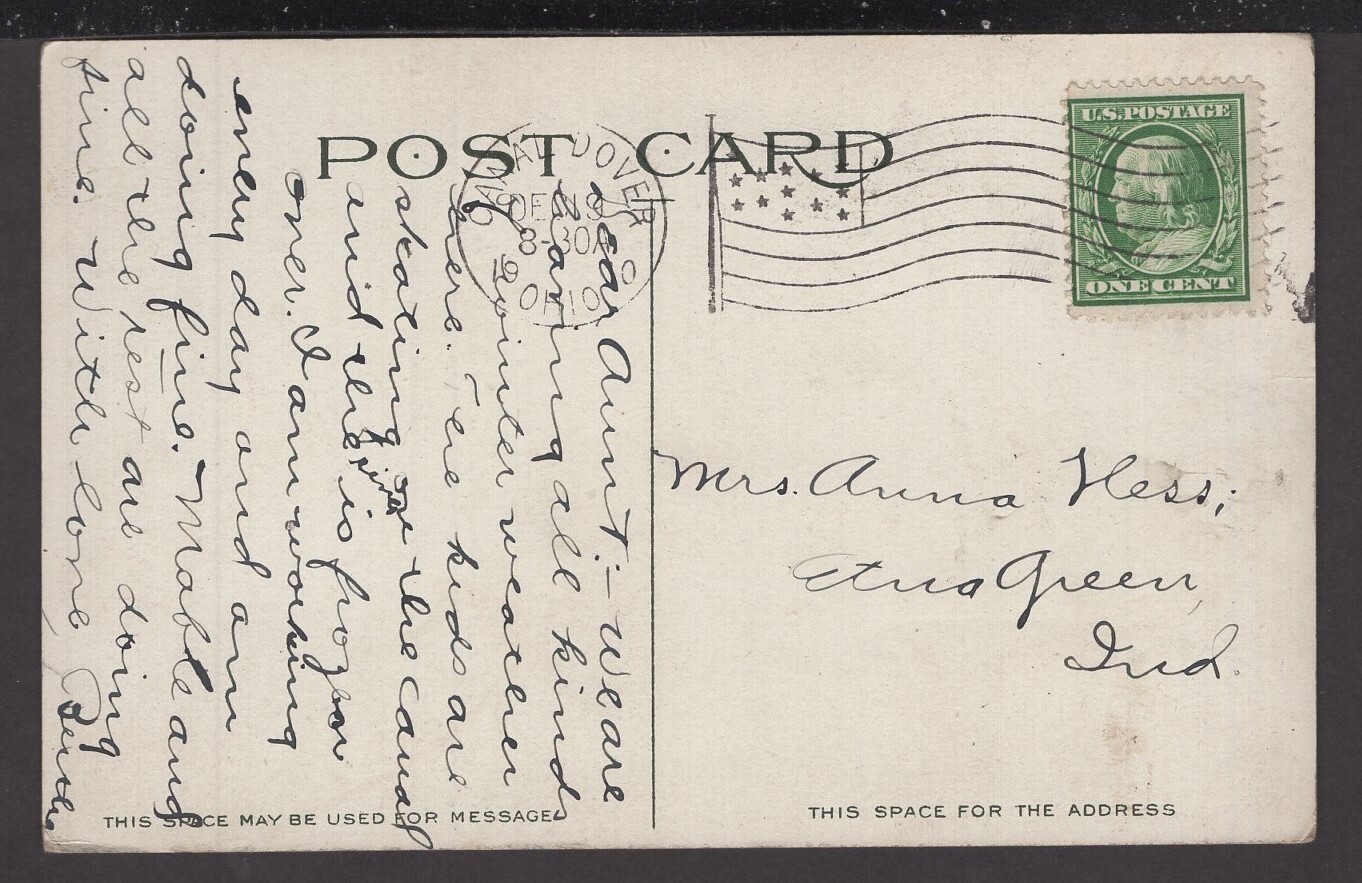 POST CARD
CANAL DOVER
DEC 19
8-30A
OHIO
U.S. POSTAGE
ONE CENT
Dear Aunt:- We are
having all kinds
of winter weather
here. The kids are
skating on the canal
and the river is frozen
over. I am working
every day and am
doing fine. Mable and
all the rest are doing
fine. With love
Mrs. Anna Hess,
Etna Green,
Ind.
THIS SPACE MAY BE USED FOR MESSAGE
THIS SPACE FOR THE ADDRESS